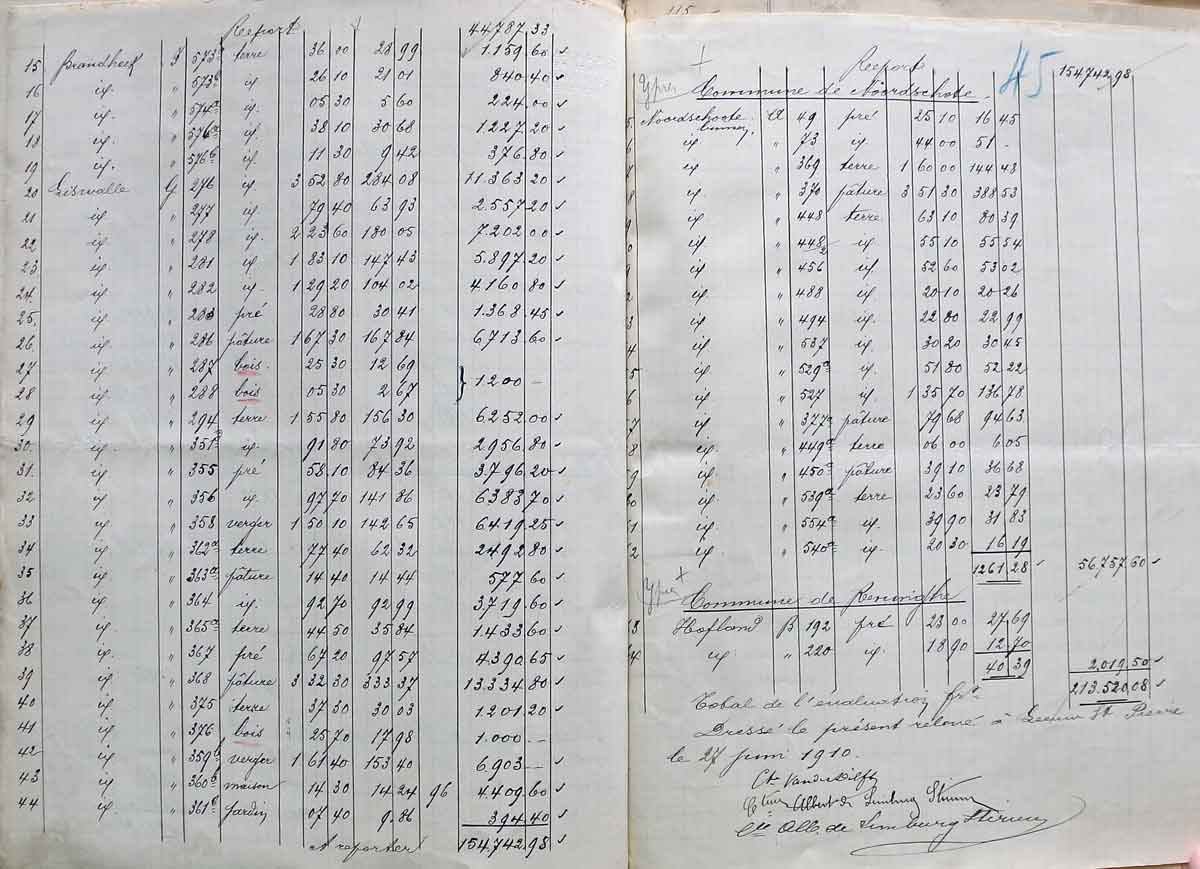 Report 44787 33
15 Brandhoek F 573ᵃ terre 36 00 28 99 1.159 60
16 id. " 573ᶜ id. 26 10 21 01 840 40
17 id. " 574ᵃ id. 05 30 5 60 224 00
18 id. " 576ᵃ id. 38 10 30 68 1227 20
19 id. " 576ᵇ id. 11 30 9 42 376 80
20 G 276 id. 3 52 80 284 08 11.363 20
21 id " 277 id. 79 40 63 93 2.557 20
22 id " 278 id. 2 23 60 180 05 7202 00
23 id " 281 id. 1 83 10 147 43 5.897 20
24 id " 282 id. 1 29 20 104 02 4.160 80
25. id " 283 pré 28 80 30 41 1.368 45
26. id " 286 pâture 1 67 30 167 84 6713 60
27 id " 287 bois. 25 30 12 69
28 id " 288 bois 05 30 2 67 } 1200 —
29 id " 294 terre 1 55 80 156 30 6.252 00
30. id " 351ᵃ id. 91 80 73 92 2.956 80
31. id " 355 pré 58 10 84 36 3.796 20
32 id " 356 id. 97 70 141 86 6383 70
33 id " 358 verger 1 50 10 142 65 6419 25
34 id " 362ᵃ terre 77 40 62 32 2492 80
35 id " 363ᵃ pâture 14 40 14 44 577 60
36 id " 364 id. 92 70 92 99 3.719 60
37 id. " 365ᵃ terre 44 50 35 84 1.433 60
38 id. " 367 pré 67 20 97 57 4.390 65
39 id. " 368 pâture 3 32 30 333 37 13.334 80
40 id. " 375 terre 37 30 30 03 1201 20
41 id " 376 bois 25 70 17 98 1.000 —
42 id " 359ᵇ verger 1 61 40 153 40 6.903 —
43 id " 360ᵇ maison 14 30 14 24 96 4.409 60
44 id. " 361ᵇ jardin 07 40 9 86 394 40
à reporter 154.742 98
115
45
Report 154.742,98
Ypres Commune de Noordschote.
5. Noordschoote A 49 pré 25 10 16 45
6 id " 73 id 44 00 51 -
7 id " 369 terre 1 60 00 144 48
8 id " 370 pâture 3 51 30 388 53
9 id " 448 terre 63 10 80 39
0 id " 448 2 id. 55 10 55 54
id " 456 id. 52 60 53 02
2 id. " 488 id. 20 10 20 26
3 id. " 494 id. 22 80 22 99
4 id. " 537 id. 30 20 30 45
5 id. " 529ᵃ id. 51 80 52 22
6 id. " 527 id. 1 35 70 136 78
7 id. " 377ᵃ pâture 79 68 94 63
8 id. " 449ᵃ terre 06 00 6 05
9 id. " 450ᵃ pâture 39 10 36 68
0 id. " 539ᵃ terre 23 60 23 79
1 id. " 554ᵃ id. 39 90 31 83
2 id. " 540ᵃ id. 20 30 16 19
1261 28 56.757 60
Ypres Commune de Reninghe
3 Hofland B 192 pré 23 00 27 69
4 id. " 220 id. 18 90 12 70
40 39 2.019,50
Total de l'évaluation frs. 213.520,08
Dressé le présent relevé à Leeuw St Pierre
le 27 juin 1910.
Cte Albert de Limburg Stirum
Cte Alb. de Limburg Stirum